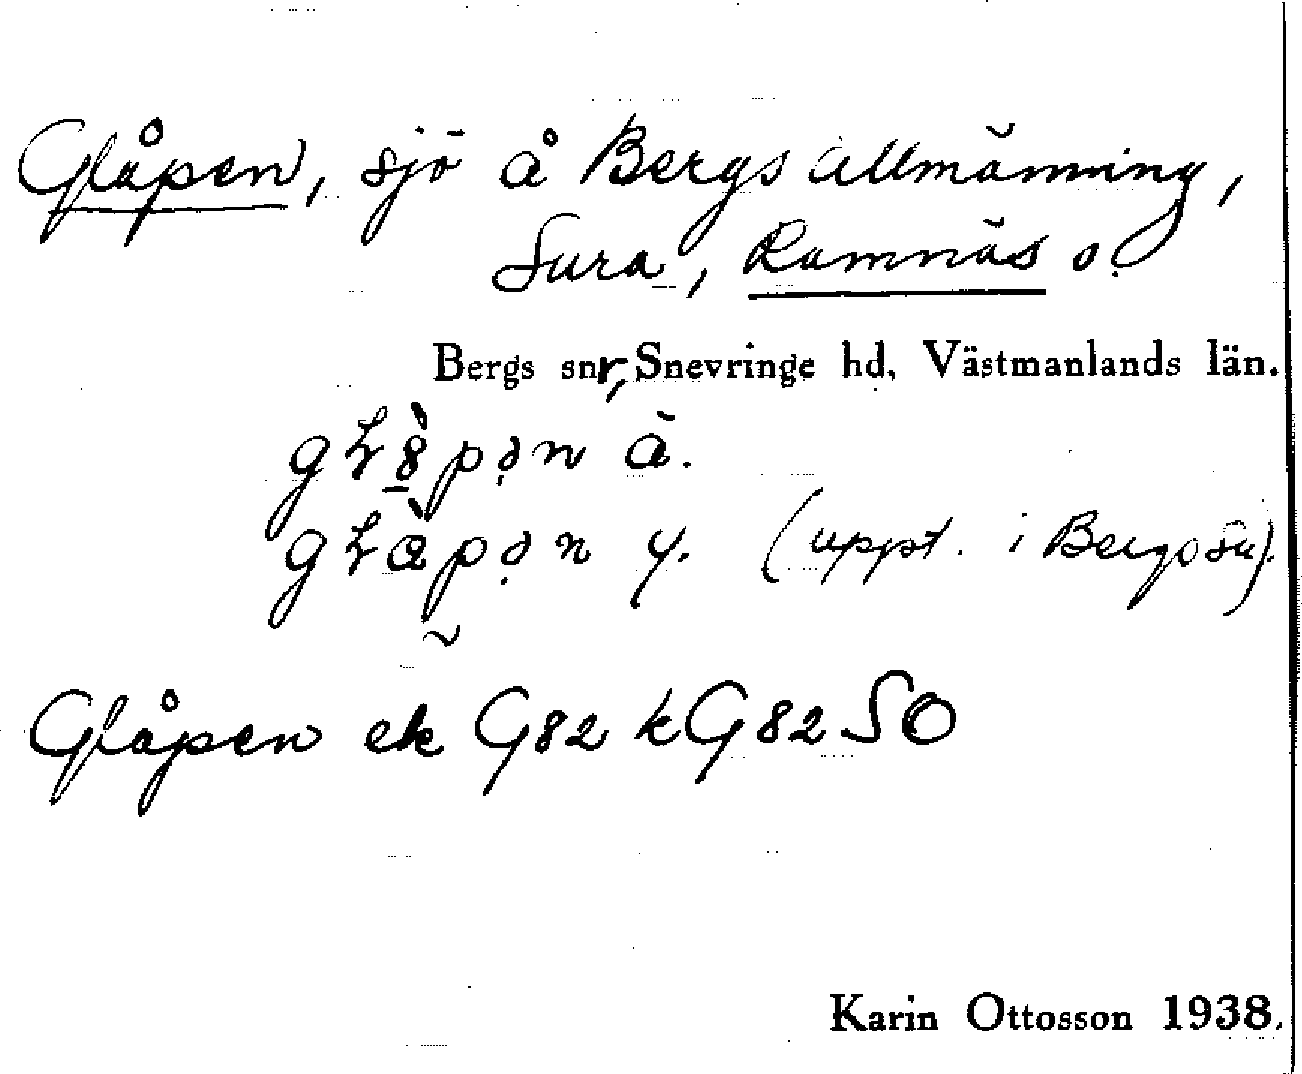 Glåpen, sjö å Bergs allmänning,
Sura, Ramnäs o.
Bergs snr, Snevringe hd, Västmanlands län.
ä.
y. (uppt. i Bergs sn).
Glåpen ek G82 kG82SO
Karin Ottosson 1938.